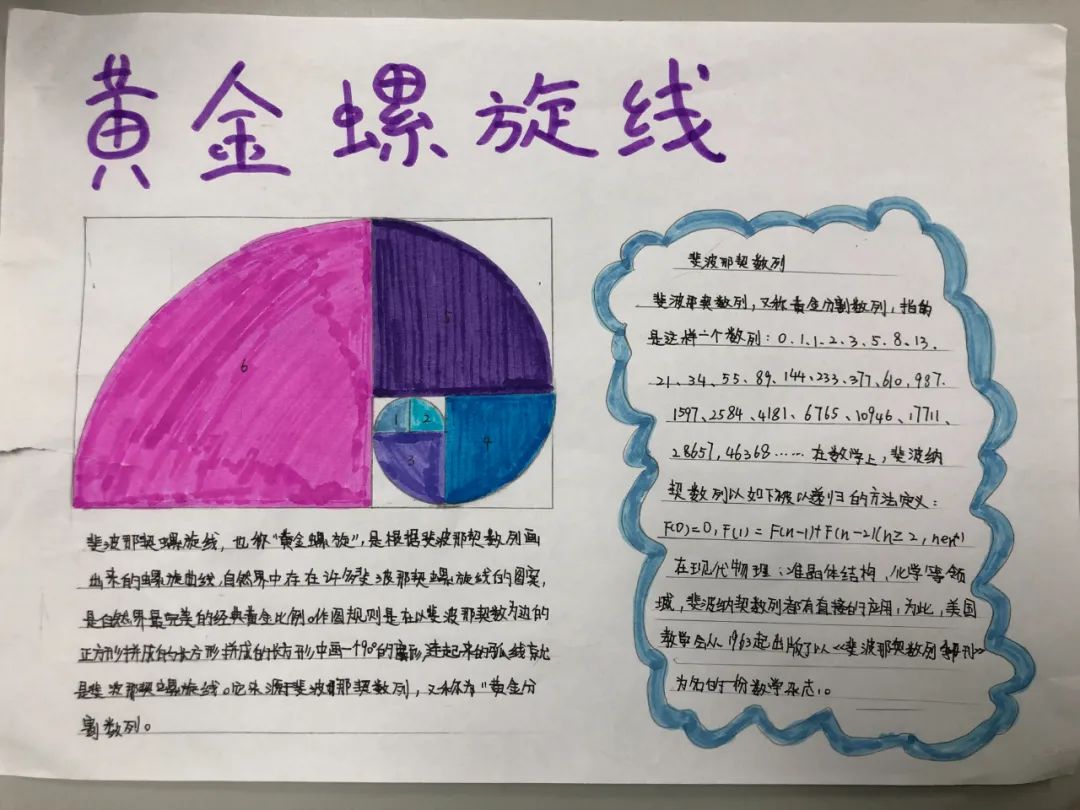 黄金螺旋线
6
5
1
2
3
4
斐波那契螺旋线，也称“黄金螺旋”，是根据斐波那契数列画
出来的螺旋曲线，自然界中存在许多斐波那契螺旋线的图案，
是自然界最完美的经典黄金比例。作图规则是在以斐波那契数为边的
正方形拼成的长方形拼成的长方形中画一个90°的扇形，连起来的弧线就
是斐波那契螺旋线。它来源于斐波那契数列，又称为“黄金分
割数列。
斐波那契数列
斐波那契数列，又称黄金分割数列，指的
是这样一个数列：0、1、1、2、3、5、8、13、
21、34、55、89、144、233、377、610、987、
1597、2584、4181、6765、10946、17711、
28657，46368……在数学上，斐波纳
契数列以如下被以递归的方法定义：
F(0)=0，F(1)=F(n-1)+F(n-2)(n≥2,
在现代物理、准晶体结构、化学等领
域，斐波纳契数列都有直接的应用，为此，美国
数学会从1963起出版了以《斐波那契数列季刊》
为名的一份数学杂志。